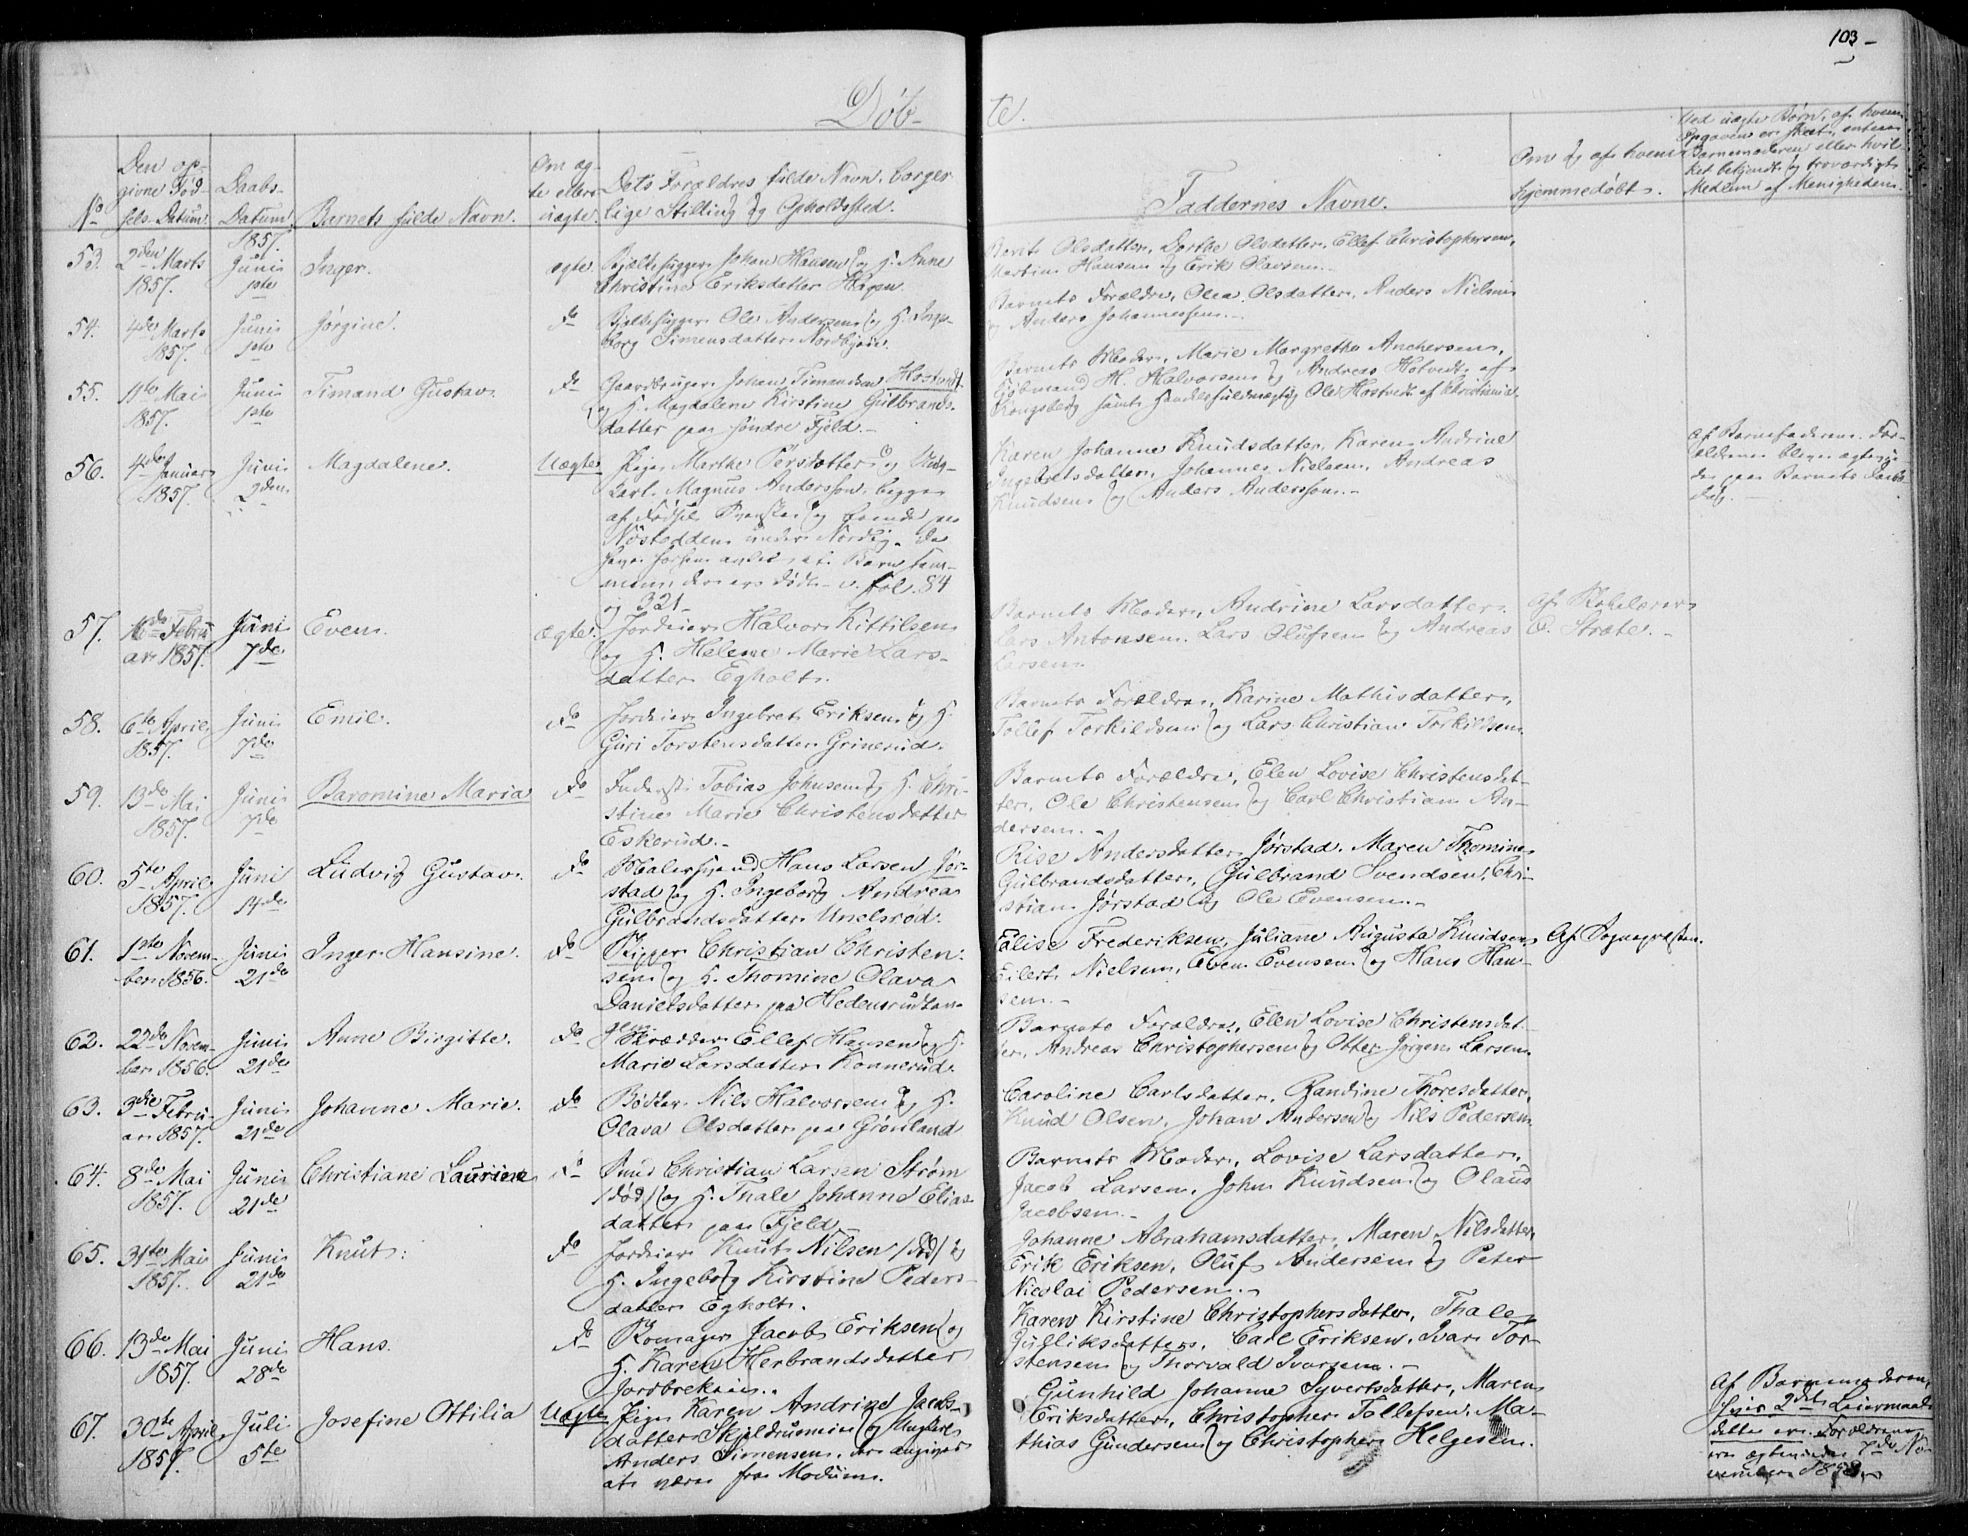 103
Døb-
te.
No
Den op-
givne Fød-
sels-Datum.
Daabs-
Datum.
Barnets fulde Navn.
Om æg-
te eller
uægte.
Dets Forældres fulde Navn, borger-
lige Stilling og Opholdssted.
Faddernes Navne.
Om og af hvem
hjemmedøbt.
Ved uægte Børn, af hvem
Opgaven er skeet, enten
Barnemoderen eller hvil-
ket bekjendt og troværdigt
Medlem af Menigheden.
1857.
53.
2den Marts
1857.
Juni
1ste
Inger.
ægte
Johan Hansen og H. Anne
Christine Eriksdatter Hagen.
Berit Olsdatter, Dorthe Olsdatter, Ellef Christophersen,
Martin Hansen og Erik Olavsen.
54.
4de Marts
1857.
Juni
1ste
Jørgine.
do
Ole Andersen og H. Inge-
borg Simensdatter
Barnets Forældre, Olea Olsdatter, Anders Nielsen
og Anders Johannessen.
55.
11te Mai
1857.
Juni
1ste
Timand Gustav.
do
Gaardbruger Johan Timandsen Hostvedt
og H. Magdalene Kirstine Gulbrands-
datter paa søndre Fjeld.
Barnets Moder, Marie Margrethe Anchersen,
Kjøbmand H. Halvorsen og Andreas Hotvedt af
Kongsberg samt Handelsfuldmægtig Ole Hostvedt af Christiania.
56.
4de Januar
1857.
Juni
2den
Magdalene.
Uægte
Pige Marthe Persdatter og Ung-
karl Magnus Andersson, begge
af Fødsel Svenske og boende paa
Nøsteddden under Nordby. De
have forhen avlet et Barn sam-
men, der er død. v. fol. 84
og 321
Karen Johanne Knudsdatter, Karen Andrine
Ingebretsdatter, Johannes Nielsen, Andreas
Knudsen og Anders Andersson.
Af Barnefaderen. For-
ældrene bleve ægtevi-
ede paa Barnets Daabs-
dag.
57.
16de Febru-
ar 1857.
Juni
7de
Even.
ægte.
Jordeier Halvor Kittilsen
og H. Helene Marie Lars-
datter Egholt.
Barnets Moder, Andrine Larsdatter,
Lars Antonsen, Lars Olufsen og Andreas
Larsen.
Af Skolelærer
O. Stræte.
58.
6te April
1857.
Juni
7de
Emil.
do
Jordeier Ingebret Eriksen og H.
Guri Torstensdatter Grinerud.
Barnets Forældre, Karine Mathisdatter,
Tollef Torkildsen og Lars Christian Torkildsen.
59.
13de Mai
1857.
Juni
7de
Baromine Maria
do
Inderst Tobias Johnsen og H. Chri-
stine Marie Christensdatter
Eskerud.
Barnets Forældre, Elen Lovise Christensdat-
ter, Ole Christensen og Carl Christian An-
dersen.
60.
5te April
1857.
Juni
14de
Ludvig Gustav.
do
Malersvend Hans Larsen Jør-
stad og H. Ingeborg Andrea
Gulbrandsdatter Unelsrød.
Rise Andersdatter Jørstad. Maren Thomine
Gulbrandsdatter, Gulbrand Svendsen, Chri-
stian Jørstad og Ole Evensen.
61.
1ste Novem-
ber 1856.
Juni
21de
Inger Hansine.
do
Rygger Christian Christen-
sen og H. Thomine Olava
Danielsdatter paa Hedenrudtan-
gen.
Elise Frederiksen, Juliane Augusta Knudsen,
Eilert Nielsen, Even Evensen og Hans Han-
sen.
Af Sognepræsten.
62.
22de Novem-
ber 1856.
Juni
21de
Anne Birgitte.
do
Skrædder Ellef Hansen og H.
Marie Larsdatter Konnerud.
Barnets Forældre, Elen Lovise Christensdat-
ter, Andreas Christophersen og Otter Jørgen Larsen.
63.
3die Febru-
ar 1857.
Juni
21de
Johanne Marie.
do
Bødker Nils Halvorsen og H.
Olava Olsdatter paa Grønland
Caroline Carlsdatter, Randine Thoresdatter,
Knud Olsen, Johan Andersen og Nils Pedersen.
64.
8de Mai
1857.
Juni
21de
Christiane Laurine
do
Smed Christian Larsen Strøm
/død/ og H. Thale Johanne Elias-
datter paa Fjeld
Barnets Moder, Lovise Larsdatter,
Jacob Larsen, John Knudsen og Olaus
Jacobsen.
65.
31te Mai
1857.
Juni
21de
Knut.
do
Jordeier Knut Nilsen /død/ og
H. Ingeborg Kirstine Peders-
datter Egholt.
Johanne Abrahamsdatter, Maren Nilsdatter,
Erik Eriksen, Oluf Andersen og Peter
Nicolai Pedersen.
66.
13de Mai
1857.
Juni
28de
Hans.
do
Skomager Jacob Eriksen og
H. Karen Herbrandsdatter
Jordbrekken.
Karen Kirstine Christophersdatter, Thale
Gulliksdatter, Carl Eriksen, Ivar Tor-
stensen og Thorvald Ivarsen.
67.
30te April
1857.
Juli
5te
Josefine Ottilia
Uægte
Pige Karen Andrine Jacobs-
datter Skjeldrumeie og Ungkarl
Anders Simensen, der angives
at være fra Modum.
Gunhild Johanne Syvertsdatter, Maren
Eriksdatter, Christopher Tollefsen, Ma-
thias Gundersen og Christopher Helgesen.
Af Barnemoderen,
hvis 2det Leiermaal
dette er. Forældrene
ere ægteviede 7de No-
vember 1858.